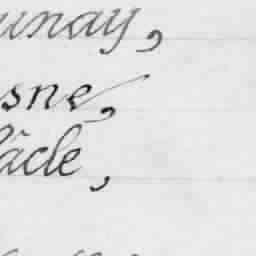 unay,
sne,
âcle,